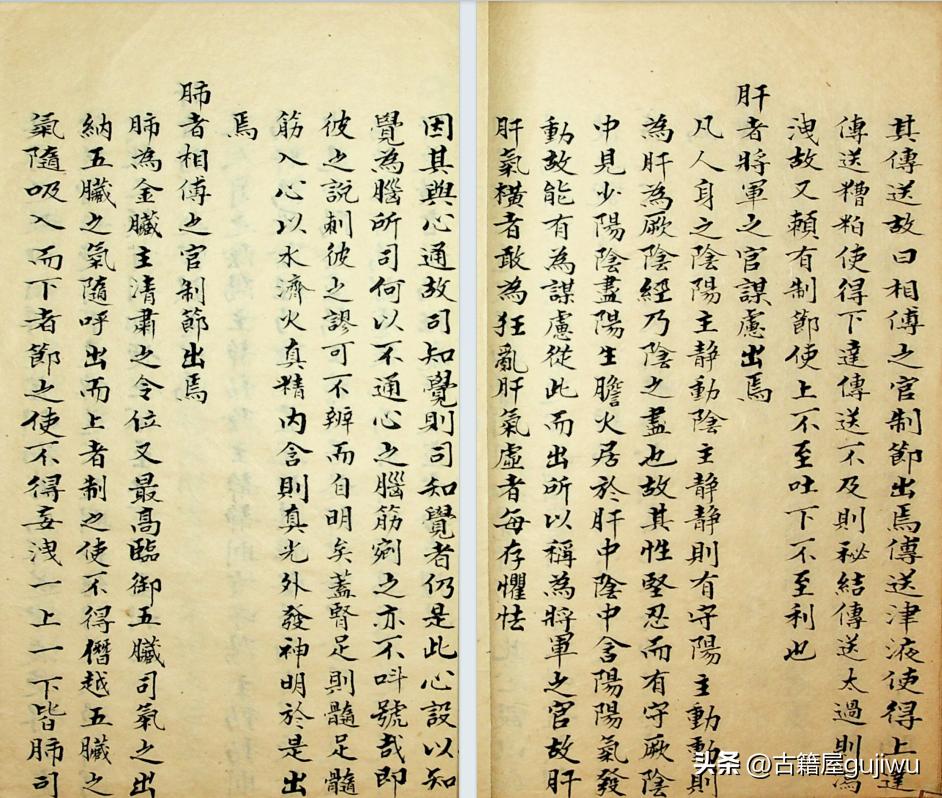 因其與心通故司知覺則司知覺者仍是此心設以知
覺為腦所司何以不通心之腦筋剜之亦不呌號哉即
彼之說刺彼之謬可不辨而自明矣蓋腎足則髓足髓
筋入心以水濟火真精内含則真光外發神明於是出
焉
肺者相傅之官制節出焉
肺為金臟主清肅之令位又最高臨御五臟司氣之出
納五臟之氣隨呼出而上者制之使不得僭越五臟之
氣隨吸入而下者節之使不得妄洩一上一下皆肺司
其傳送故曰相傅之官制節出焉傳送津液使得上達
傳送糟粕使得下達傳送不及則秘結傳送太過則為
洩故又賴有制節使上不至吐下不至利也
肝者將軍之官謀慮出焉
凡人身之陰陽主靜動陰主靜靜則有守陽主動動則
為肝為厥陰經乃陰之盡也故其性堅忍而有守厥陰
中見少陽陰盡陽生膽火居於肝中陰中含陽陽氣發
動故能有為謀慮從此而出所以稱為將軍之官故肝
肝氣橫者敢為狂亂肝氣虛者每存懼怯
头条 @古籍屋gujiwu